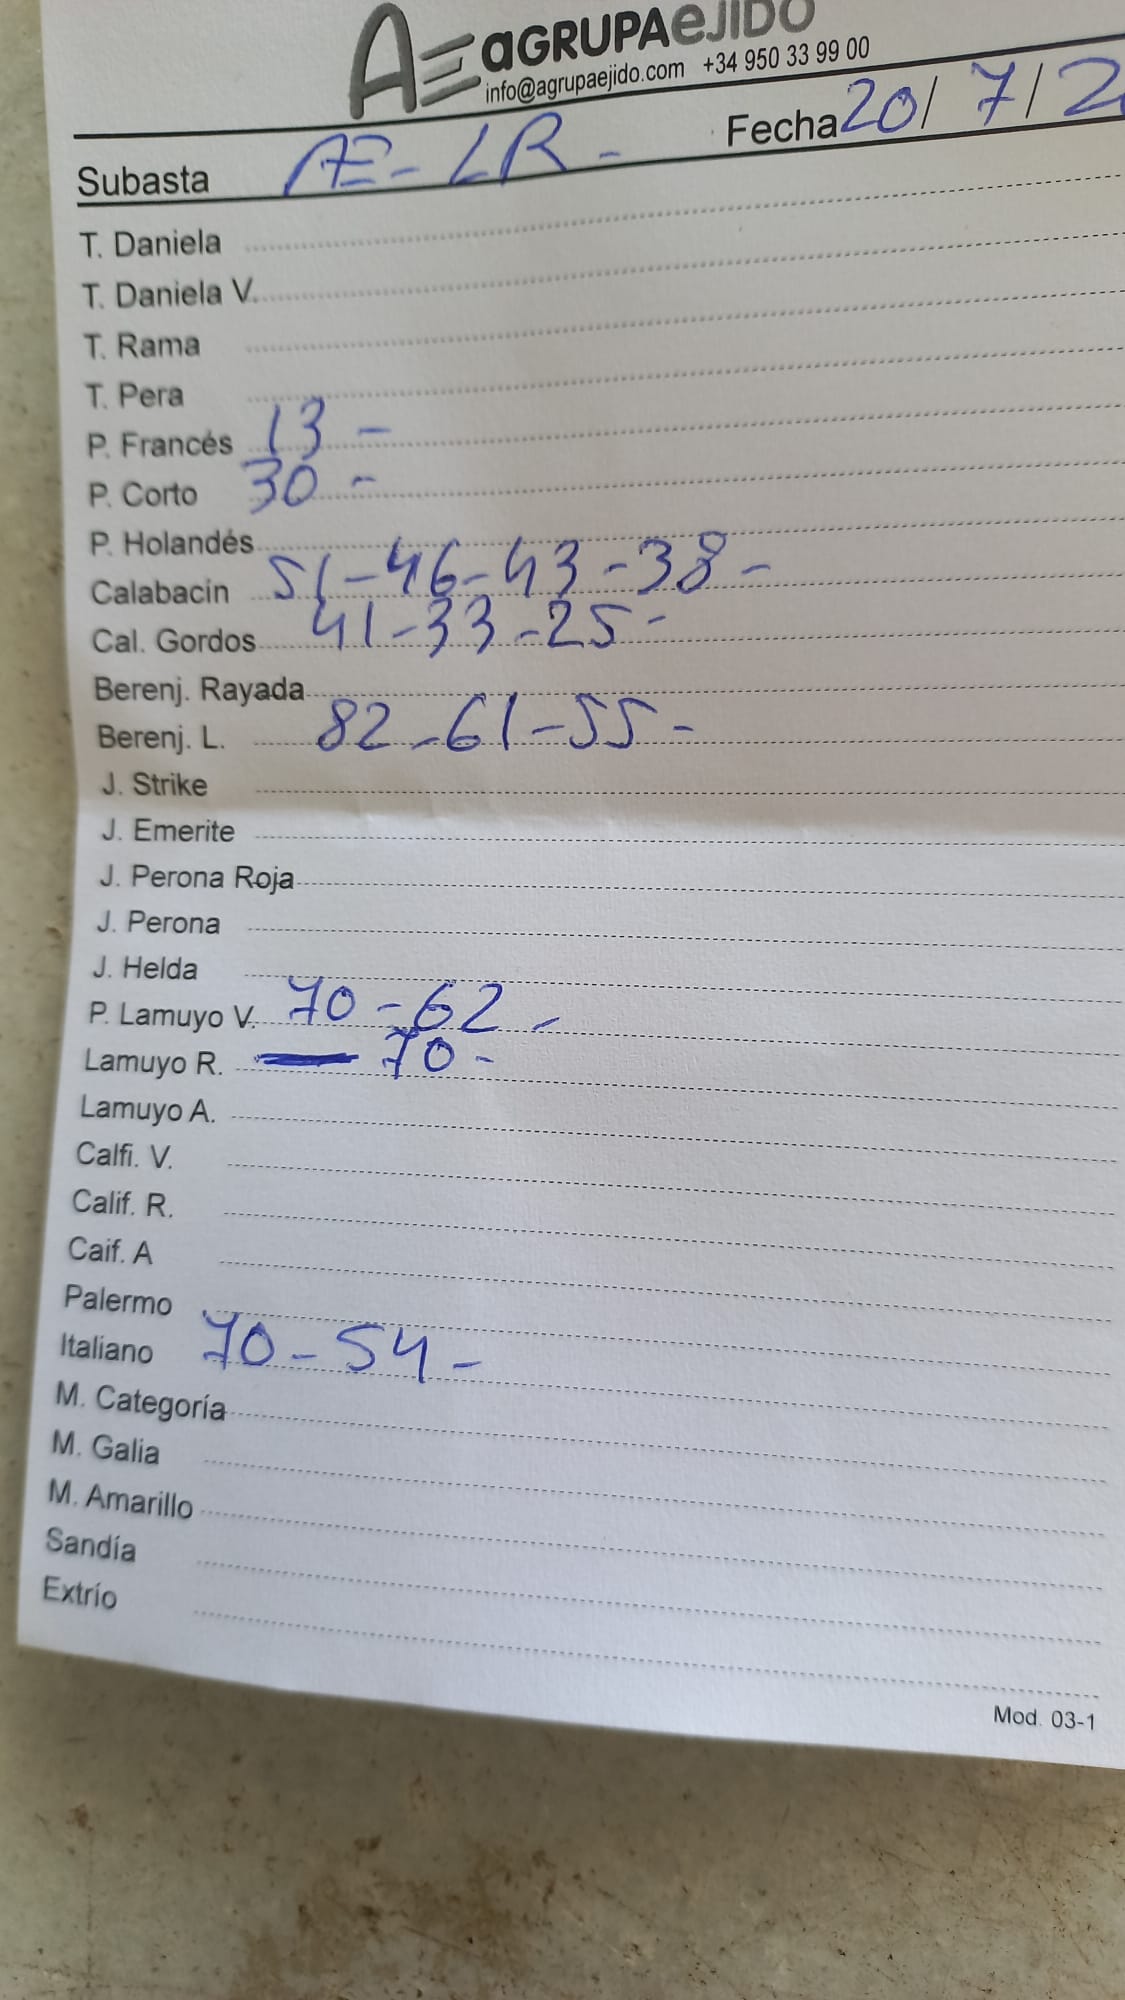 AE aGRUPAeJIDO
info@agrupaejido.com +34 950 33 99 00
Fecha 20/7/2
Subasta AE-LR-
T. Daniela
T. Daniela V.
T. Rama
T. Pera
P. Francés 13-
P. Corto 30-
P. Holandés
Calabacín 51-46-43-38-
Cal. Gordos 41-33-25-
Berenj. Rayada
Berenj. L. 82-61-55-
J. Strike
J. Emerite
J. Perona Roja
J. Perona
J. Helda
P. Lamuyo V. 70-62-
Lamuyo R. 70-
Lamuyo A.
Calfi. V.
Calif. R.
Caif. A
Palermo
Italiano 70-54-
M. Categoría
M. Galia
M. Amarillo
Sandía
Extrío
Mod. 03-1